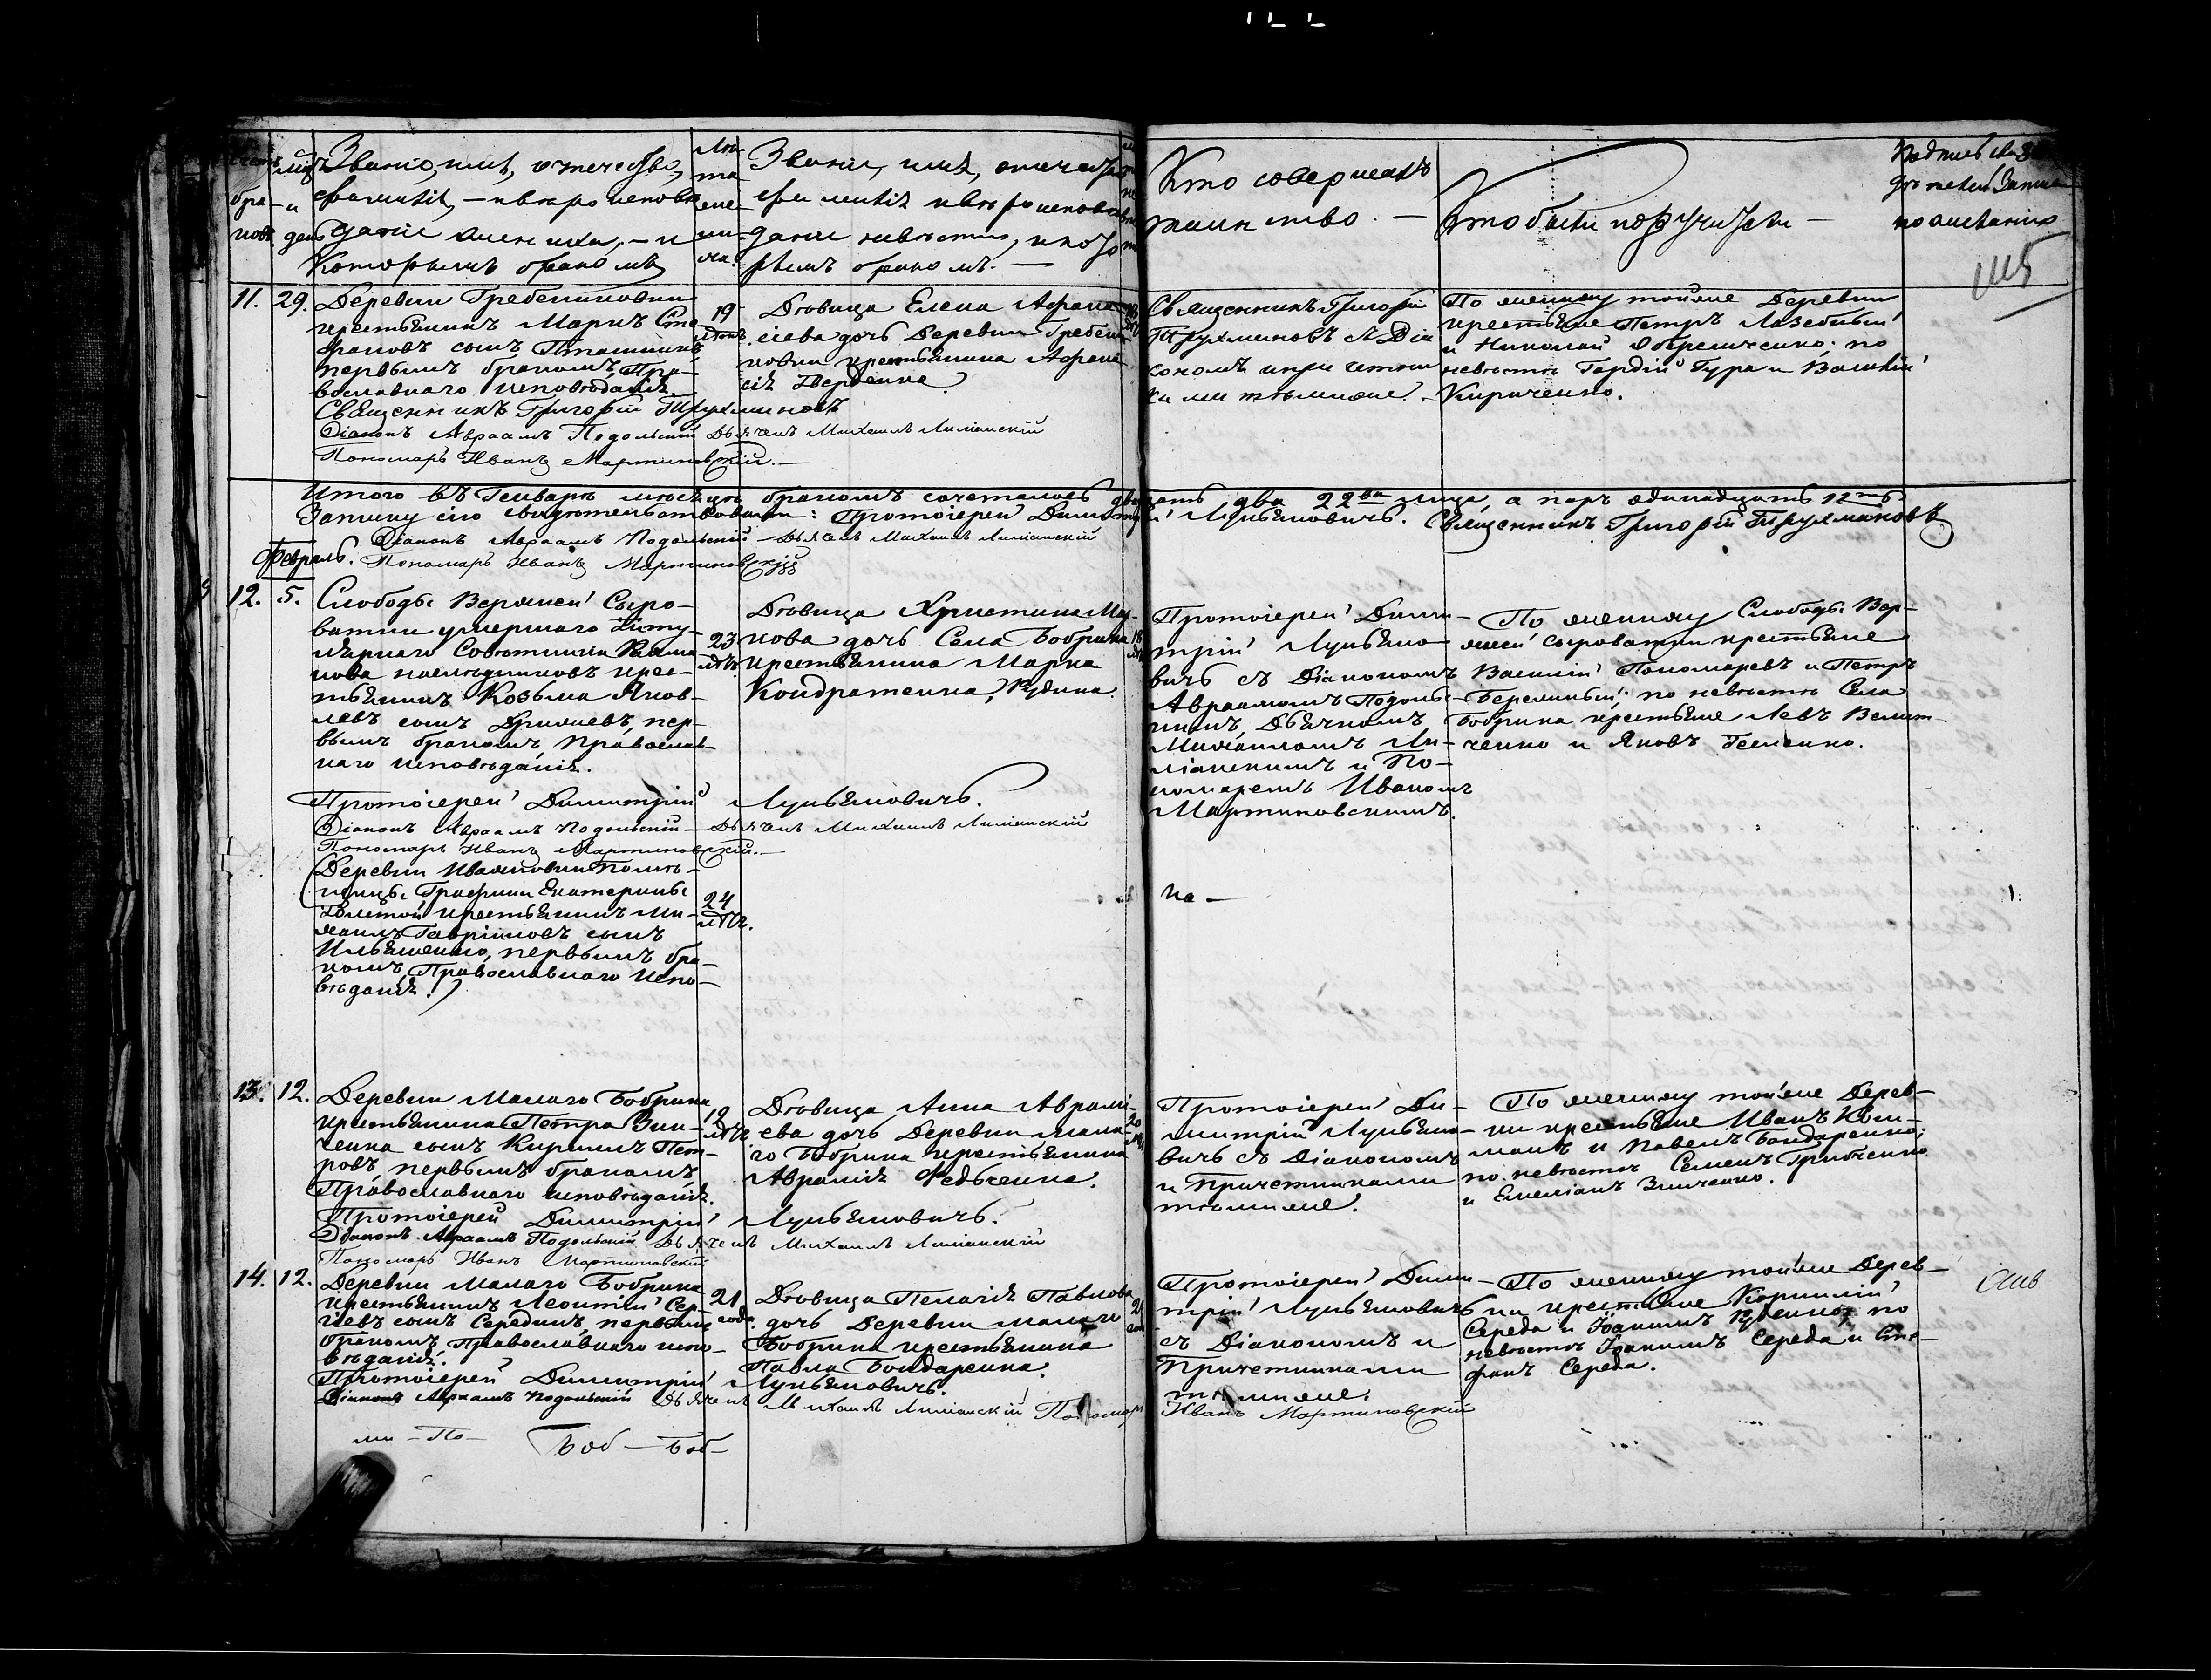 Званіе, имя, отчество,
фамилія, — и вѣроисповѣ
даніе жениха, — и
которымъ бракомъ
Званіе, имя, отчество
фамилія и вѣроисповѣ
даніе невѣсты, и кото
рымъ бракомъ. —
Кто совершалъ
таинство. —
Кто были поручители —
11. 29. Деревни Гребениковки
крестьянинъ Маркъ Сте
фановъ сынъ
первымъ бракомъ, Пра-
вославнаго исповѣданія
19
лѣтъ.
Дѣвица Елена Афана
сіева дочь Деревни Гребени
ковки крестьянина Афана
сія
Священникъ Григорій
Трухмановъ съ Діа
кономъ и причетни
ками тѣмиже. —
По жениху тойже Деревни
крестьяне Петръ Лазебный
и Николай; по
невѣстѣ Гордій Гура и Василій
Кириченко.
Священникъ Григорій Трухмановъ
Діаконъ Авраамъ Подольскій Дьячекъ Михаилъ
Пономарь Иванъ Мартиновскій. —
Итого въ Генварѣ мѣсяцѣ бракомъ сочеталось двадцать два 22ва лица, а паръ одинадцать
Запись сію свидѣтельствовали: Протоіерей Димитрій Лукьяновичъ. Священникъ Григорій Трухмановъ
Діаконъ Авраамъ Подольскій — Дьячекъ Михаилъ
Февраль. Пономарь Иванъ Мартиновскій
12. 5. Слободы Верхней Сыро-
ватки умершаго Титу-
лярнаго Совѣтника
наслѣдниковъ крес-
тьянинъ Козьма Яков-
левъ сынъ, пер-
вымъ бракомъ, Православ-
наго исповѣданія.
23
лѣтъ.
Дѣвица Христина Мар-
кова дочь Села Бобрика
крестьянина Марка
Кондратенка,
Протоіерей Дими-
трій Лукьяно-
вичъ съ Діакономъ
Авраамомъ Подоль-
скимъ, Дьячкомъ
Михаиломъ
и По-
номаремъ Иваномъ
Мартиновскимъ.
По жениху Слободы Вер-
хней Сыроватки крестьяне
Василій Пономаревъ и Петръ
по невѣстѣ Села
Бобрика крестьяне Левъ
и Яковъ
Протоіерей Димитрій Лукьяновичъ.
Діаконъ Авраамъ Подольскій — Дьячекъ Михаилъ
Пономарь Иванъ Мартиновскій. —
(Деревни помѣ-
щицы Графини Екатерины
Толстой крестьянинъ Ми-
хаилъ Гавріиловъ сынъ
Ильяшенко, первымъ бра-
комъ, Православнаго испо-
вѣданія.)
24
лѣтъ.
По —
13. 12. Деревни Малаго Бобрика
крестьянина Петра Зин-
ченка сынъ Кирилъ Пет-
ровъ, первымъ бракомъ,
Православнаго исповѣданія.
19
лѣтъ.
Дѣвица Анна Аврамі-
ева дочь Деревни Мала-
го Бобрика крестьянина
Аврамія Федьченка.
Протоіерей Ди-
митрій Лукьяно-
вичъ съ Діакономъ
и Причетниками
тѣмиже.
По жениху тойже Дерев-
ни крестьяне Иванъ
и Павелъ Бондаренко;
по невѣстѣ Семенъ Гриченко
и Емеліанъ Зинченко.
Протоіерей Димитрій Лукьяновичъ.
Діаконъ Авраамъ Подольскій Дьячекъ Михаилъ
Пономарь Иванъ Мартиновскій
14. 12. Деревни Малаго Бобрика
крестьянинъ Леонтій Сер-
гіевъ сынъ Середичъ, первымъ
бракомъ, Православнаго испо-
вѣданія.
21
года.
Дѣвица Пелагія Павлова
дочь Деревни Малаго
Бобрика крестьянина
Павла Бондаренка.
Протоіерей Дими-
трій Лукьяновичъ
съ Діакономъ и
Причетниками
тѣмиже.
По жениху тойже Дерев-
ни крестьяне Корнилій
Середа и Іоакимъ по
невѣстѣ Іоакимъ Середа и Сте-
фанъ Середа.
Протоіерей Димитрій Лукьяновичъ.
Діаконъ Авраамъ Подольскій Дьячекъ Михаилъ Пономарь Иванъ Мартиновскій
ми — По — Боб — Боб —